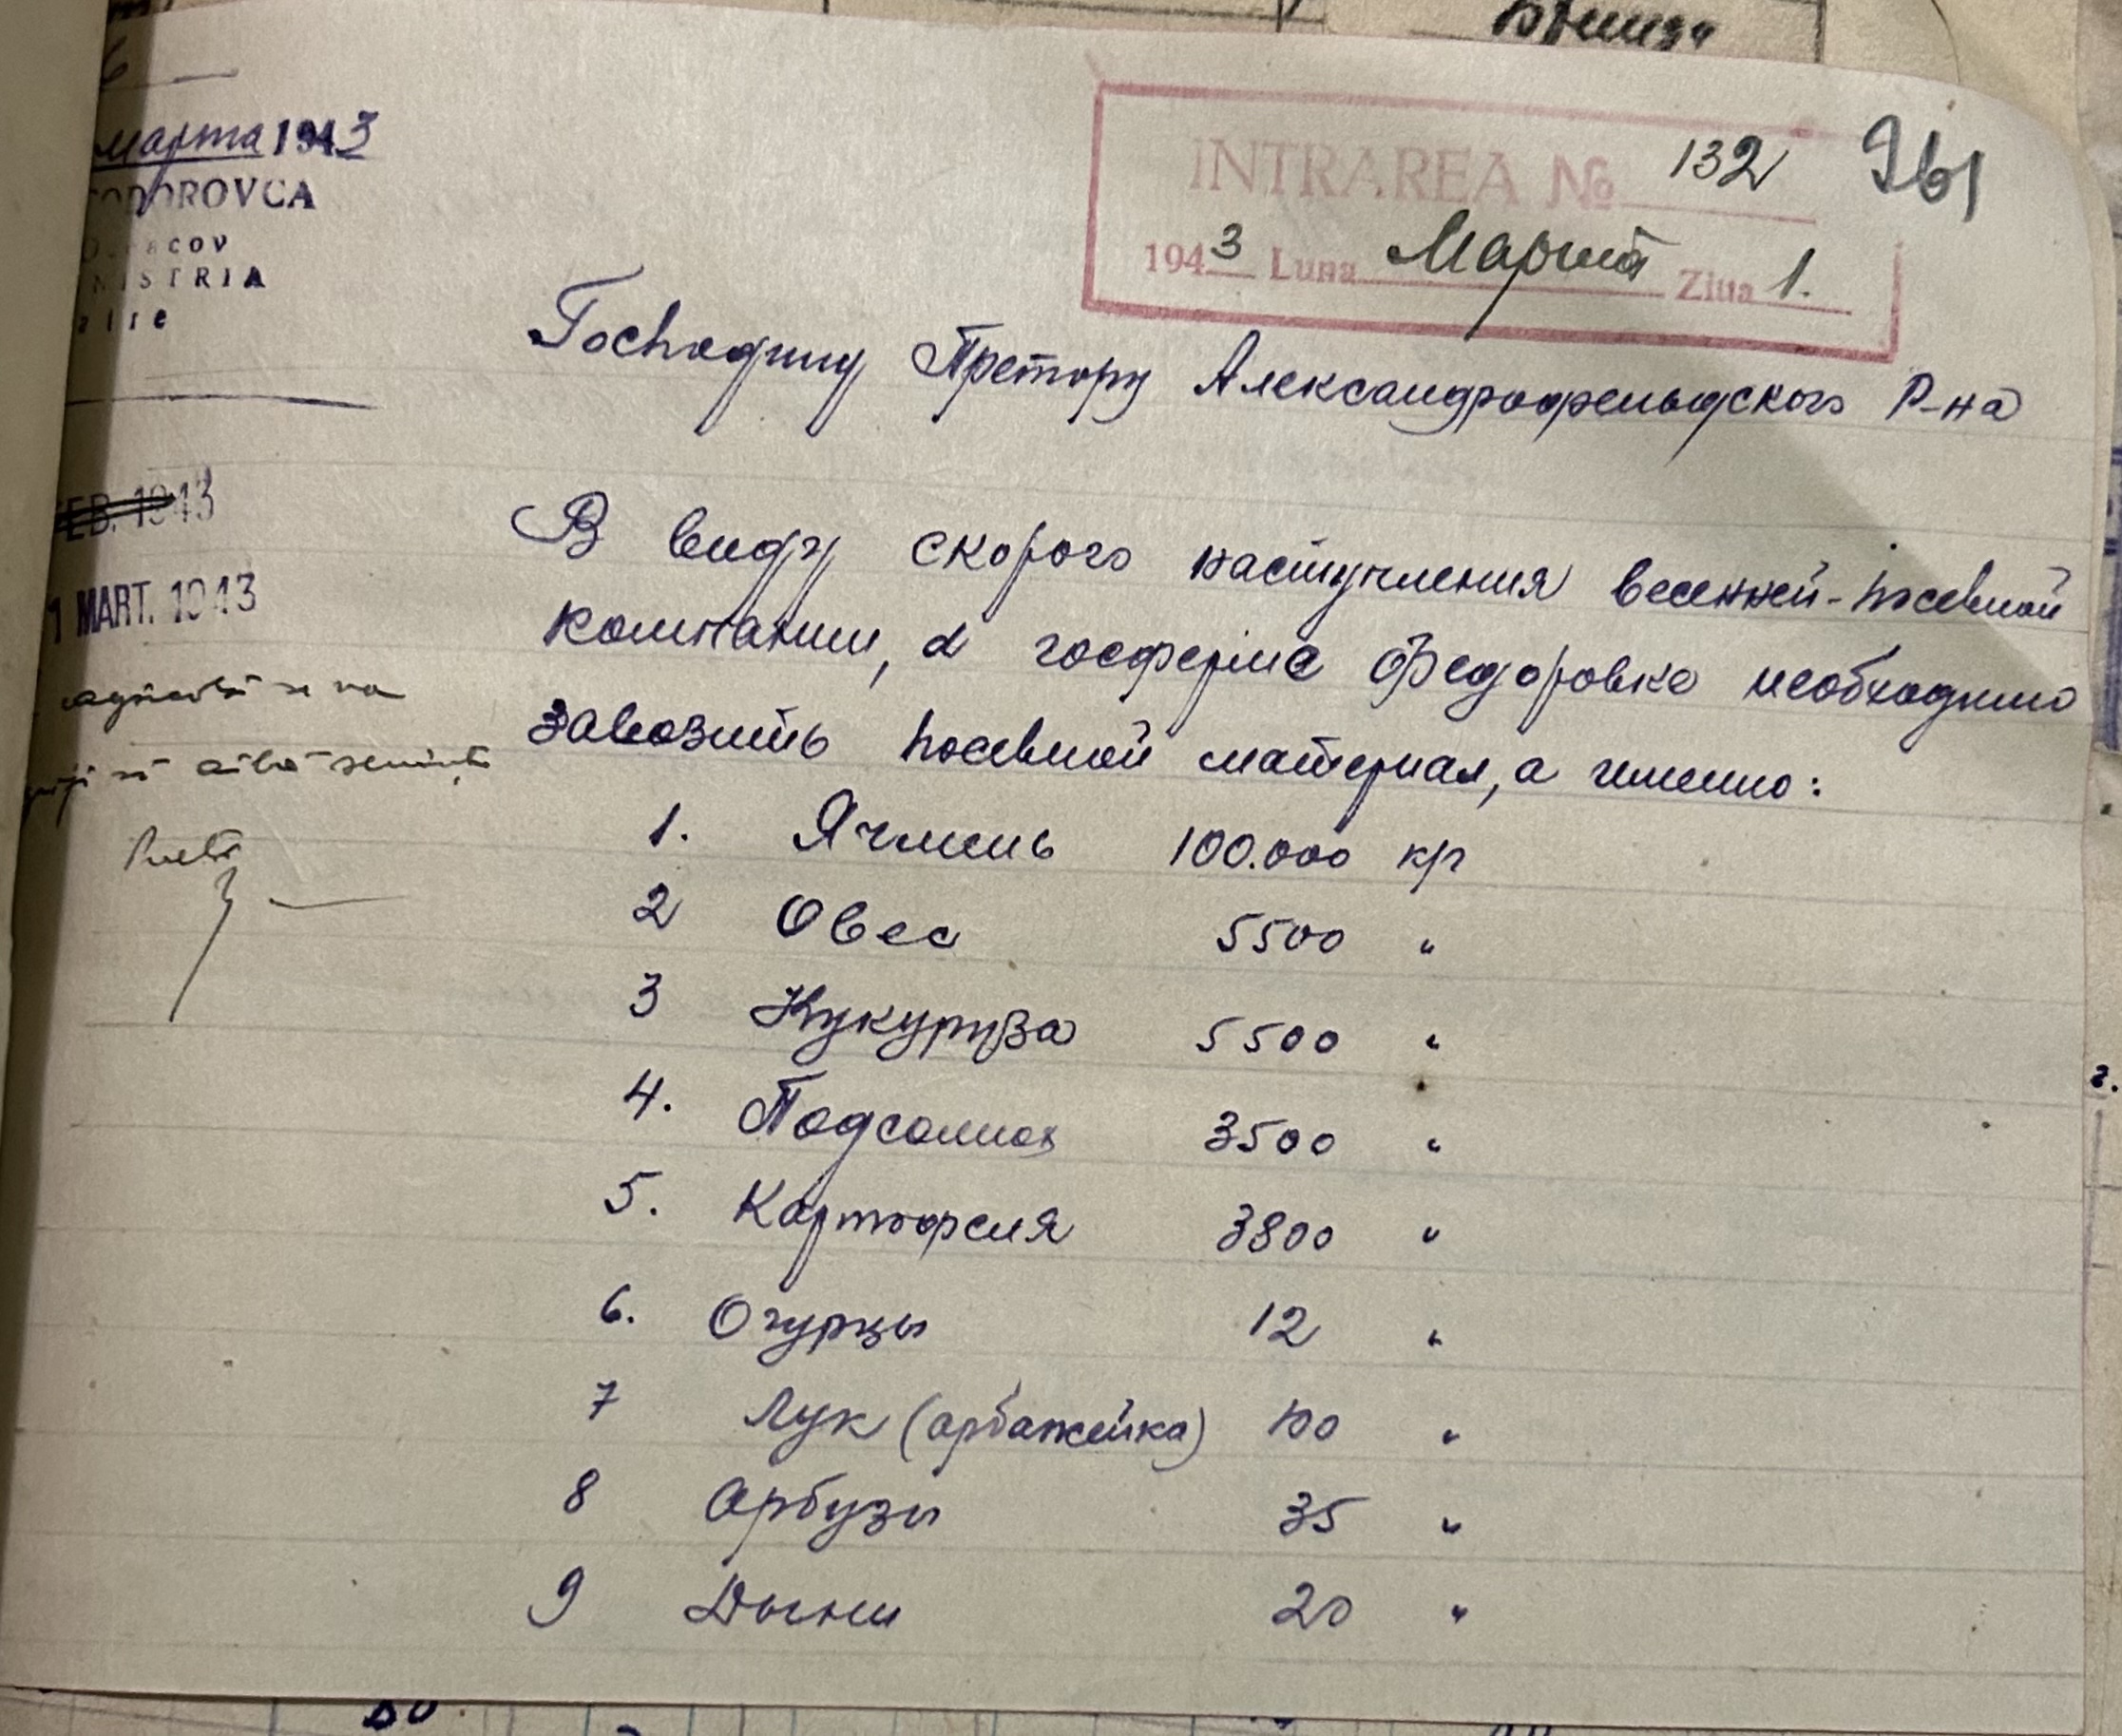 INTRAREA № 132
961
1943 Luna Марта Ziua 1.
марта 1943
TODOROVCA
NISTRIA
Господину Претору Александрофельдского Р-на
FEB. 1943
1 MART. 1943
să aibă seminţe
В виду скорого наступления весенней-посевной
компании, в госферме Федоровке необходимо
завозить посевной материал, а именно:
1. Ячмень 100.000 кг
2 Овес 5500 "
3 Кукуруза 5500 "
4. Подсолнох 3500 "
5. Картофеля 3800 "
6. Огурцы 12 "
7 Лук (арбажейка) 100 "
8 Арбузы 35 "
9 Дыни 20 "